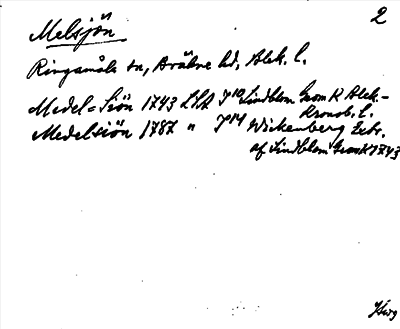 2
Melsjön
Ringamåla sn, Bräkne hd, Blek. l.
Medel=Siön 1743 LSA J10 Lindblom Grom K Blek.-
Kronob. l.
Medelsiön 1787 " J14 Wickenberg Extr.
af Lindblom Grom K 1743